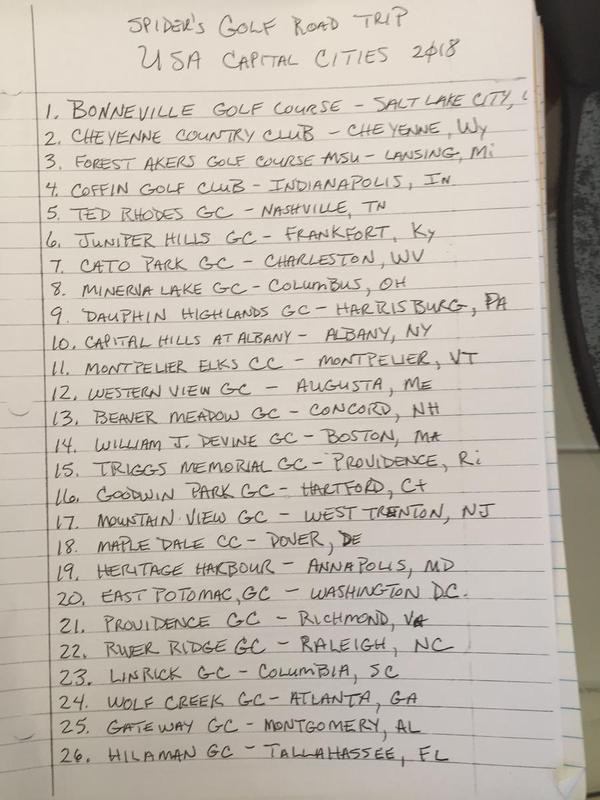 SPIDER'S GOLF ROAD TRIP
USA CAPITAL CITIES 2018
1. BONNEVILLE GOLF COURSE - SALT LAKE CITY,
2. CHEYENNE COUNTRY CLUB - CHEYENNE, Wy
3. FOREST AKERS GOLF COURSE MSU - LANSING, Mi
4. COFFIN GOLF CLUB - INDIANAPOLIS, IN
5. TED RHODES GC - NASHVILLE, TN
6. JUNIPER HILLS GC - FRANKFORT, Ky
7. CATO PARK GC - CHARLESTON, WV
8. MINERVA LAKE GC - COLUMBUS, OH
9. DAUPHIN HIGHLANDS GC - HARRISBURG, PA
10. CAPITAL HILLS AT ALBANY - ALBANY, NY
11. MONTPELIER ELKS CC - MONTPELIER, VT
12. WESTERN VIEW GC - AUGUSTA, ME
13. BEAVER MEADOW GC - CONCORD, NH
14. WILLIAM J. DEVINE GC - BOSTON, MA
15. TRIGGS MEMORIAL GC - PROVIDENCE, Ri
16. GOODWIN PARK GC - HARTFORD, Ct
17. MOUNTAIN VIEW GC - WEST TRENTON, NJ
18. MAPLE DALE CC - DOVER, DE
19. HERITAGE HARBOUR - ANNAPOLIS, MD
20. EAST POTOMAC, GC - WASHINGTON D.C.
21. PROVIDENCE GC - RICHMOND, VA
22. RIVER RIDGE GC - RALEIGH, NC
23. LINRICK GC - COLUMBIA, SC
24. WOLF CREEK GC - ATLANTA, GA
25. GATEWAY GC - MONTGOMERY, AL
26. HILAMAN GC - TALLAHASSEE, FL